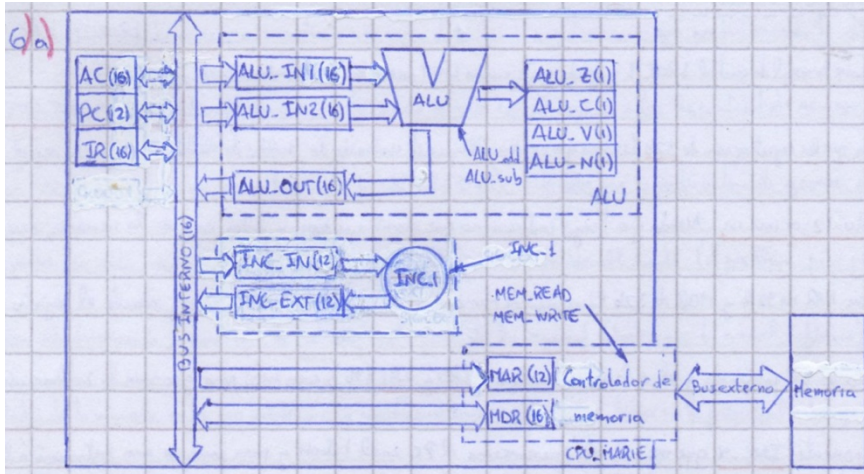 6)a)
AC(16)
PC(12)
IR(16)
BUS INTERNO (16)
ALU_IN1(16)
ALU_IN2(16)
ALU
ALU_Z(1)
ALU_C(1)
ALU_V(1)
ALU_N(1)
ALU_add
ALU_sub
ALU_OUT(16)
ALU
INC_IN(12)
INC_EXT(12)
INC_1
INC_1
MEM_READ
MEM_WRITE
MAR(12)
MDR(16)
Controlador de
memoria
CPU_MARIE
Bus externo
Memoria